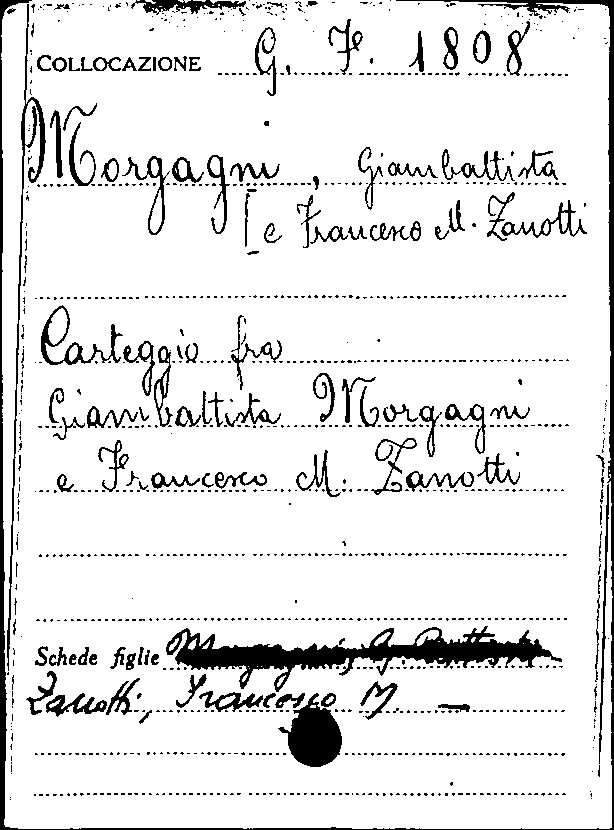 COLLOCAZIONE G. F. 1808
Morgagni, Giambattista
[e Francesco M. Zanotti
Carteggio fra
Giambattista Morgagni
e Francesco M. Zanotti
Schede figlie Morgagni, G. Battista
Zanotti, Francesco M. —